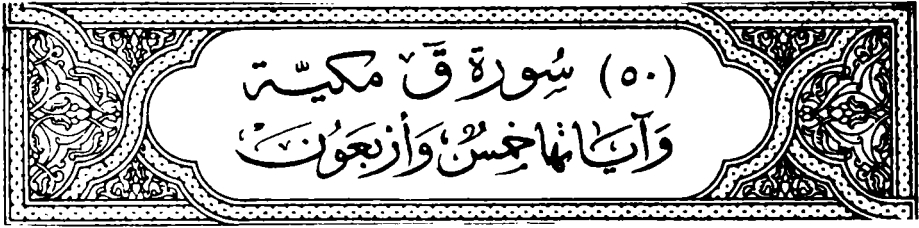 (٥٠) سُورَة قَ مكيّة
وَآيَاتُهَا خَمْسٌ وَأَرْبَعُونَ